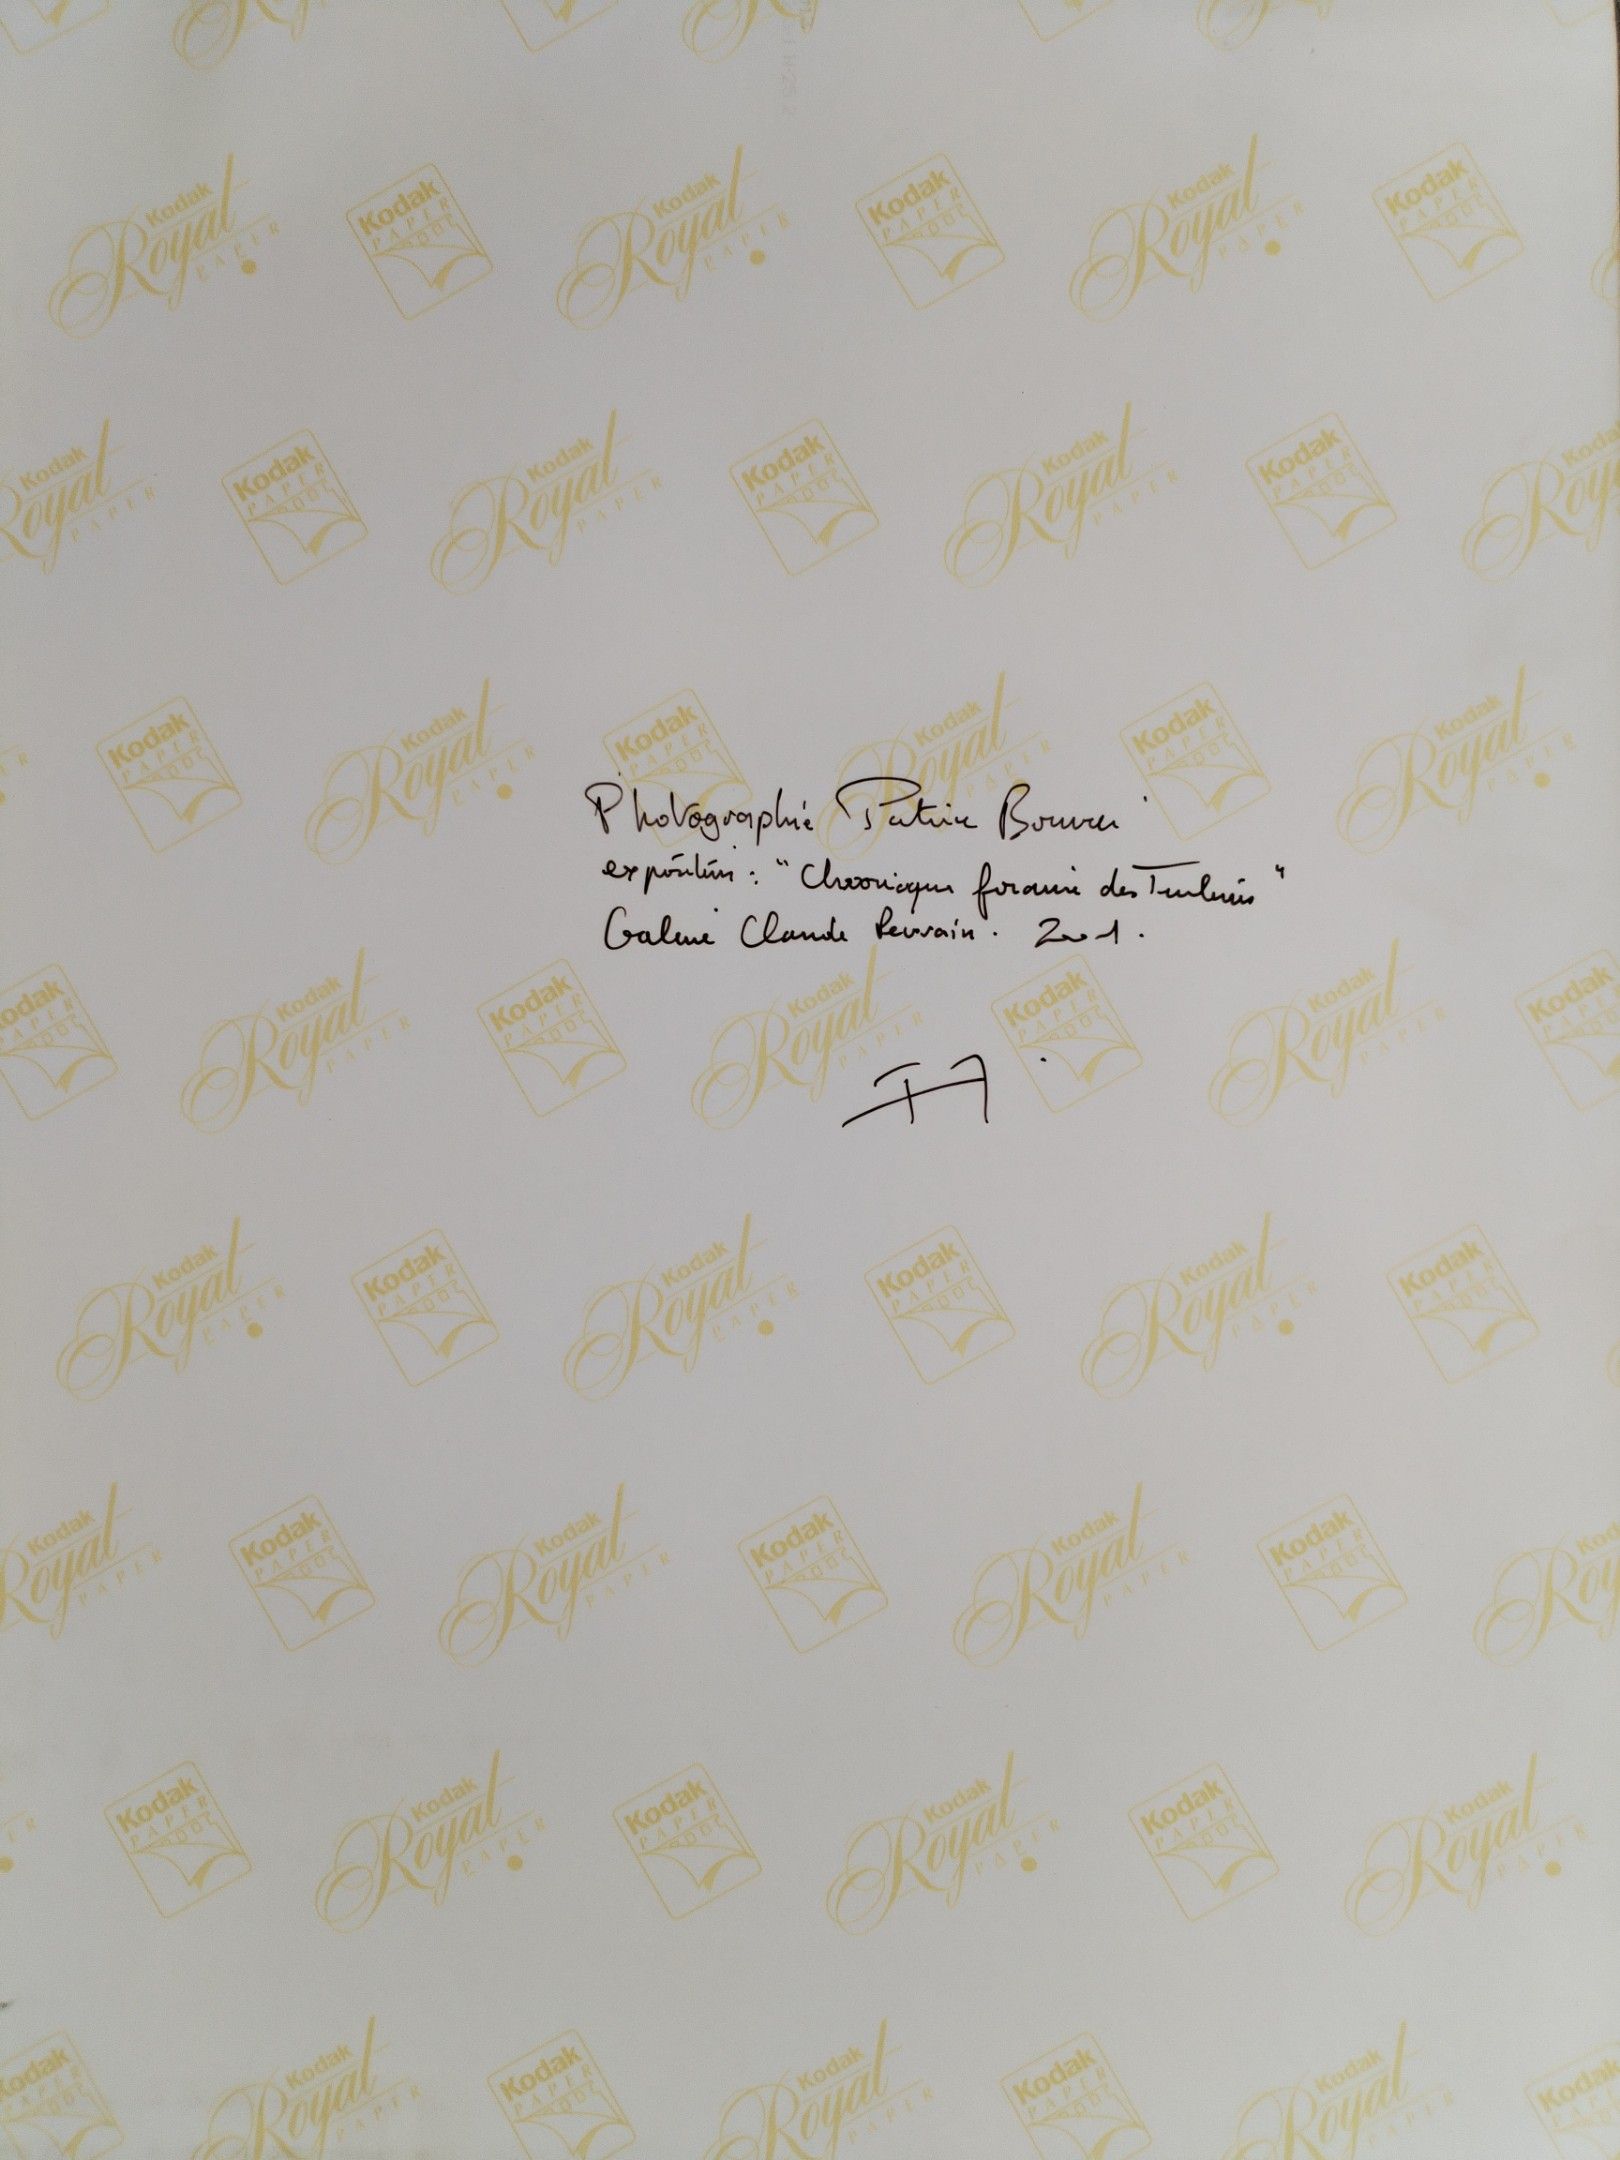 Photographie Patrice Bouvier
exposition : "Chronique foraine des Tuileries"
Galerie Claude 2001.
Kodak
Royal
PAPER
Kodak
PAPER